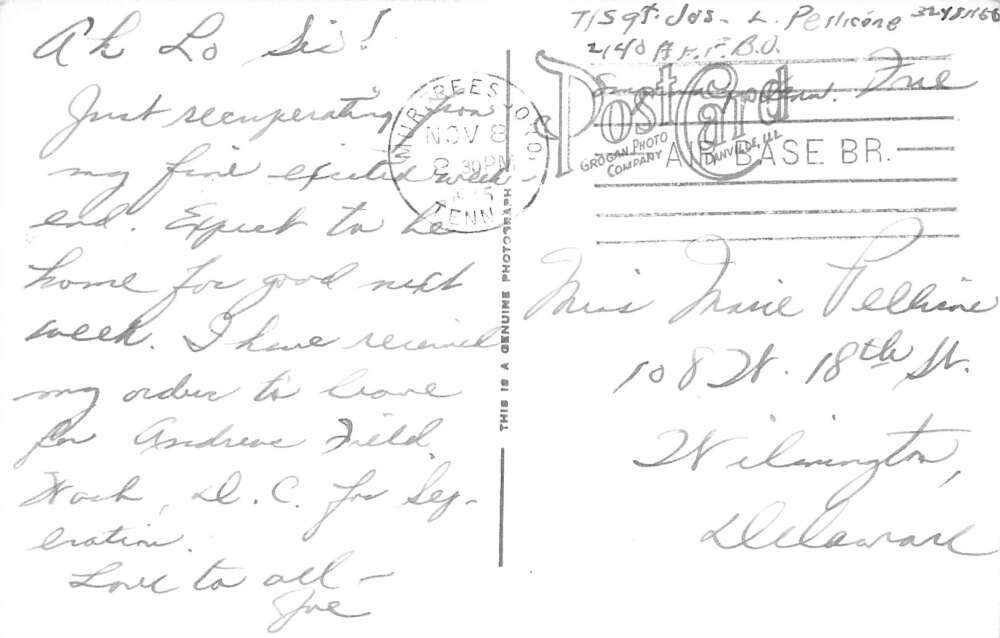 Ah Lo Sis!
Just recuperating from
my fine excited week-
end. Expect to be
home for good next
week. I have received
my orders to leave
for Andrews Field,
Wash, D.C. for Sep-
eration.
Love to all –
Joe
T/Sgt. Jos. L. Pellicone
2140 A.A.F.B.U.
Smyrna, Tenn. Free
MURFREESBORO,
NOV 8
30 PM
TENN.
AIR BASE BR.
Post Card
GROGAN PHOTO
COMPANY
DANVILLE, ILL
THIS IS A GENUINE PHOTOGRAPH
Miss Marie Pellicone
108 W. 18th St.
Wilmington,
Delaware